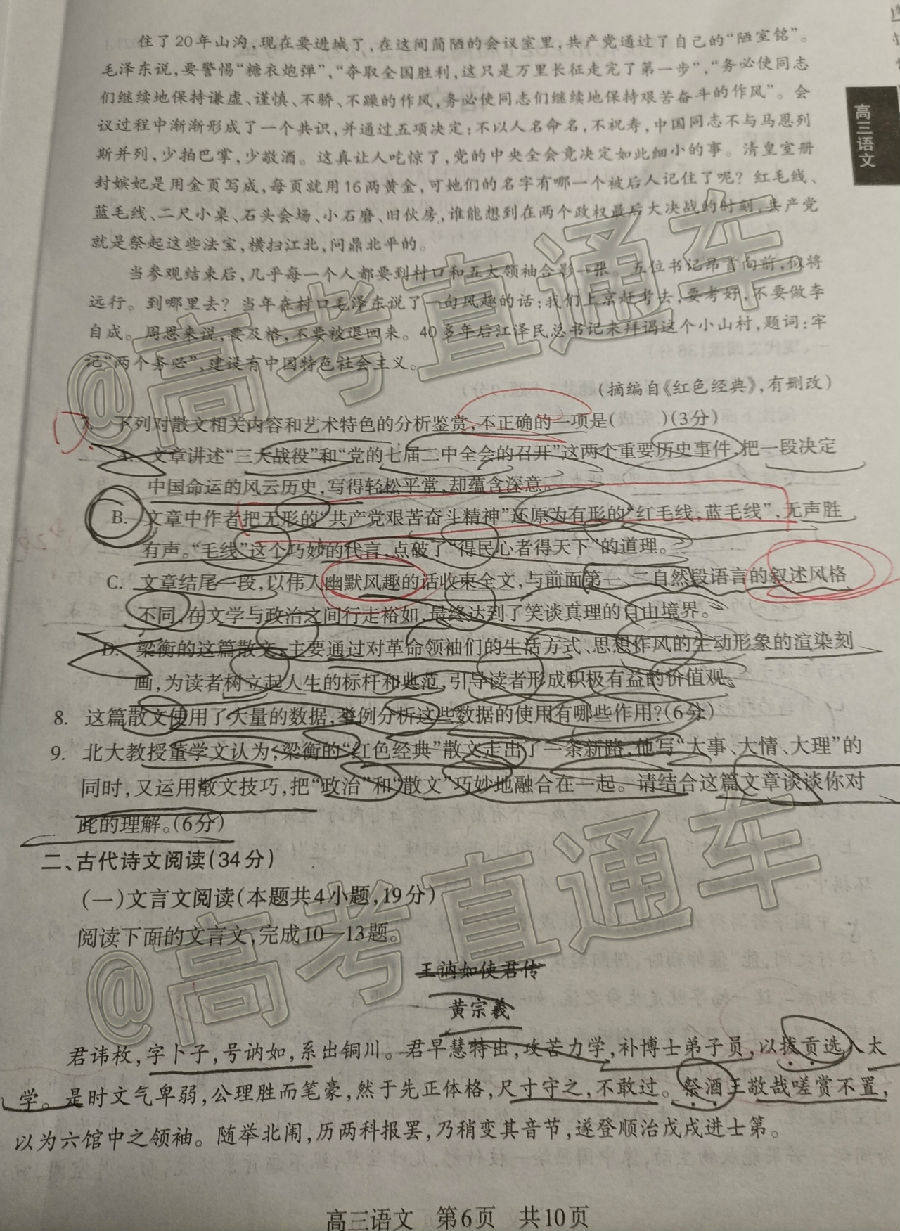 住了20年山沟,现在要进城了,在这间简陋的会议室里,共产党通过了自己的“陋室铭”。
毛泽东说,要警惕“糖衣炮弹”,“夺取全国胜利,这只是万里长征走完了第一步”,“务必使同志
们继续地保持谦虚、谨慎、不骄、不躁的作风,务必使同志们继续地保持艰苦奋斗的作风”。会
议过程中渐渐形成了一个共识,并通过五项决定:不以人名命名,不祝寿,中国同志不与马恩列
斯并列,少拍巴掌,少敬酒。这真让人吃惊了,党的中央全会竟决定如此细小的事。清皇室册
封嫔妃是用金页写成,每页就用16两黄金,可她们的名字有哪一个被后人记住了呢?红毛线、
蓝毛线、二尺小桌、石头会场、小石磨、旧伙房,谁能想到在两个政权最后大决战的时刻,共产党
就是祭起这些法宝,横扫江北,问鼎北平的。
当参观结束后,几乎每一个人都要到村口和五大领袖合影一张。五位书记昂首向前,似将
远行。到哪里去?当年在村口毛泽东说了一句风趣的话:我们上京赶考去,要考好,不要做李
自成。周恩来说,要及格,不要被退回来。40多年后江泽民总书记来拜谒这个小山村,题词:牢
记“两个务必”,建设有中国特色社会主义。
(摘编自《红色经典》,有删改)
7. 下列对散文相关内容和艺术特色的分析鉴赏,不正确的一项是( )(3分)
A. 文章讲述“三大战役”和“党的七届二中全会的召开”这两个重要历史事件,把一段决定
中国命运的风云历史,写得轻松平常,却蕴含深意。
B. 文章中作者把无形的“共产党艰苦奋斗精神”还原为有形的“红毛线,蓝毛线”,无声胜
有声。“毛线”这个巧妙的代言,点破了“得民心者得天下”的道理。
C. 文章结尾一段,以伟人幽默风趣的话收束全文,与前面第一、二自然段语言的叙述风格
不同,在文学与政治之间行走裕如,最终达到了笑谈真理的自由境界。
D. 梁衡的这篇散文,主要通过对革命领袖们的生活方式、思想作风的生动形象的渲染刻
画,为读者树立起人生的标杆和典范,引导读者形成积极有益的价值观。
8. 这篇散文使用了大量的数据,举例分析这些数据的使用有哪些作用?(6分)
9. 北大教授董学文认为,梁衡的“红色经典”散文走出了一条新路,他写“大事、大情、大理”的
同时,又运用散文技巧,把“政治”和“散文”巧妙地融合在一起。请结合这篇文章谈谈你对
此的理解。(6分)
二、古代诗文阅读(34分)
(一)文言文阅读(本题共4小题,19分)
阅读下面的文言文,完成10—13题。
王讷如使君传
黄宗羲
君讳枚,字卜子,号讷如,系出铜川。君早慧特出,攻苦力学,补博士弟子员,以拔贡选入太
学。是时文气卑弱,公理胜而笔豪,然于先正体格,尺寸守之,不敢过。祭酒王敬哉嗟赏不置,
以为六馆中之领袖。随举北闱,历两科报罢,乃稍变其音节,遂登顺治戊戌进士第。
高三语文 第6页 共10页
高三语文
@高考直通车
@高考直通车